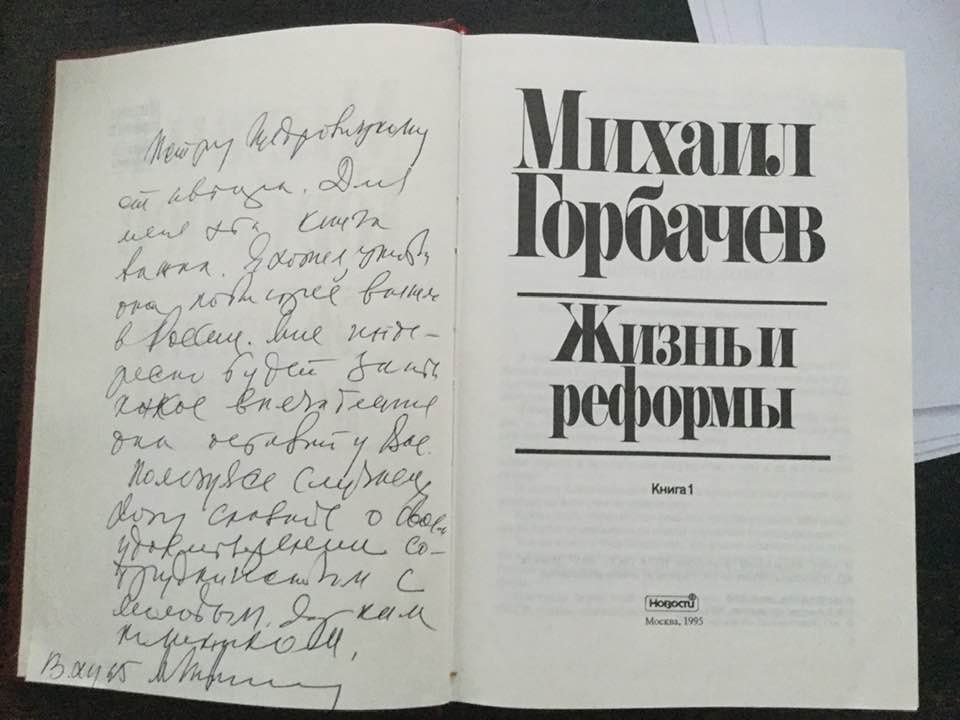 Петру Щедровицкому
от автора. Для
меня эта книга
важна. Я хотел, чтобы
она поскорее вышла
в России. Мне инте-
ресно будет знать
какое впечатление
она оставит у Вас.
Пользуясь случаем,
хочу сказать о своем
удовлетворении со-
трудничеством с
молодым,
Михаил
Горбачев
Жизнь и
реформы
Книга 1
Новости
Москва, 1995